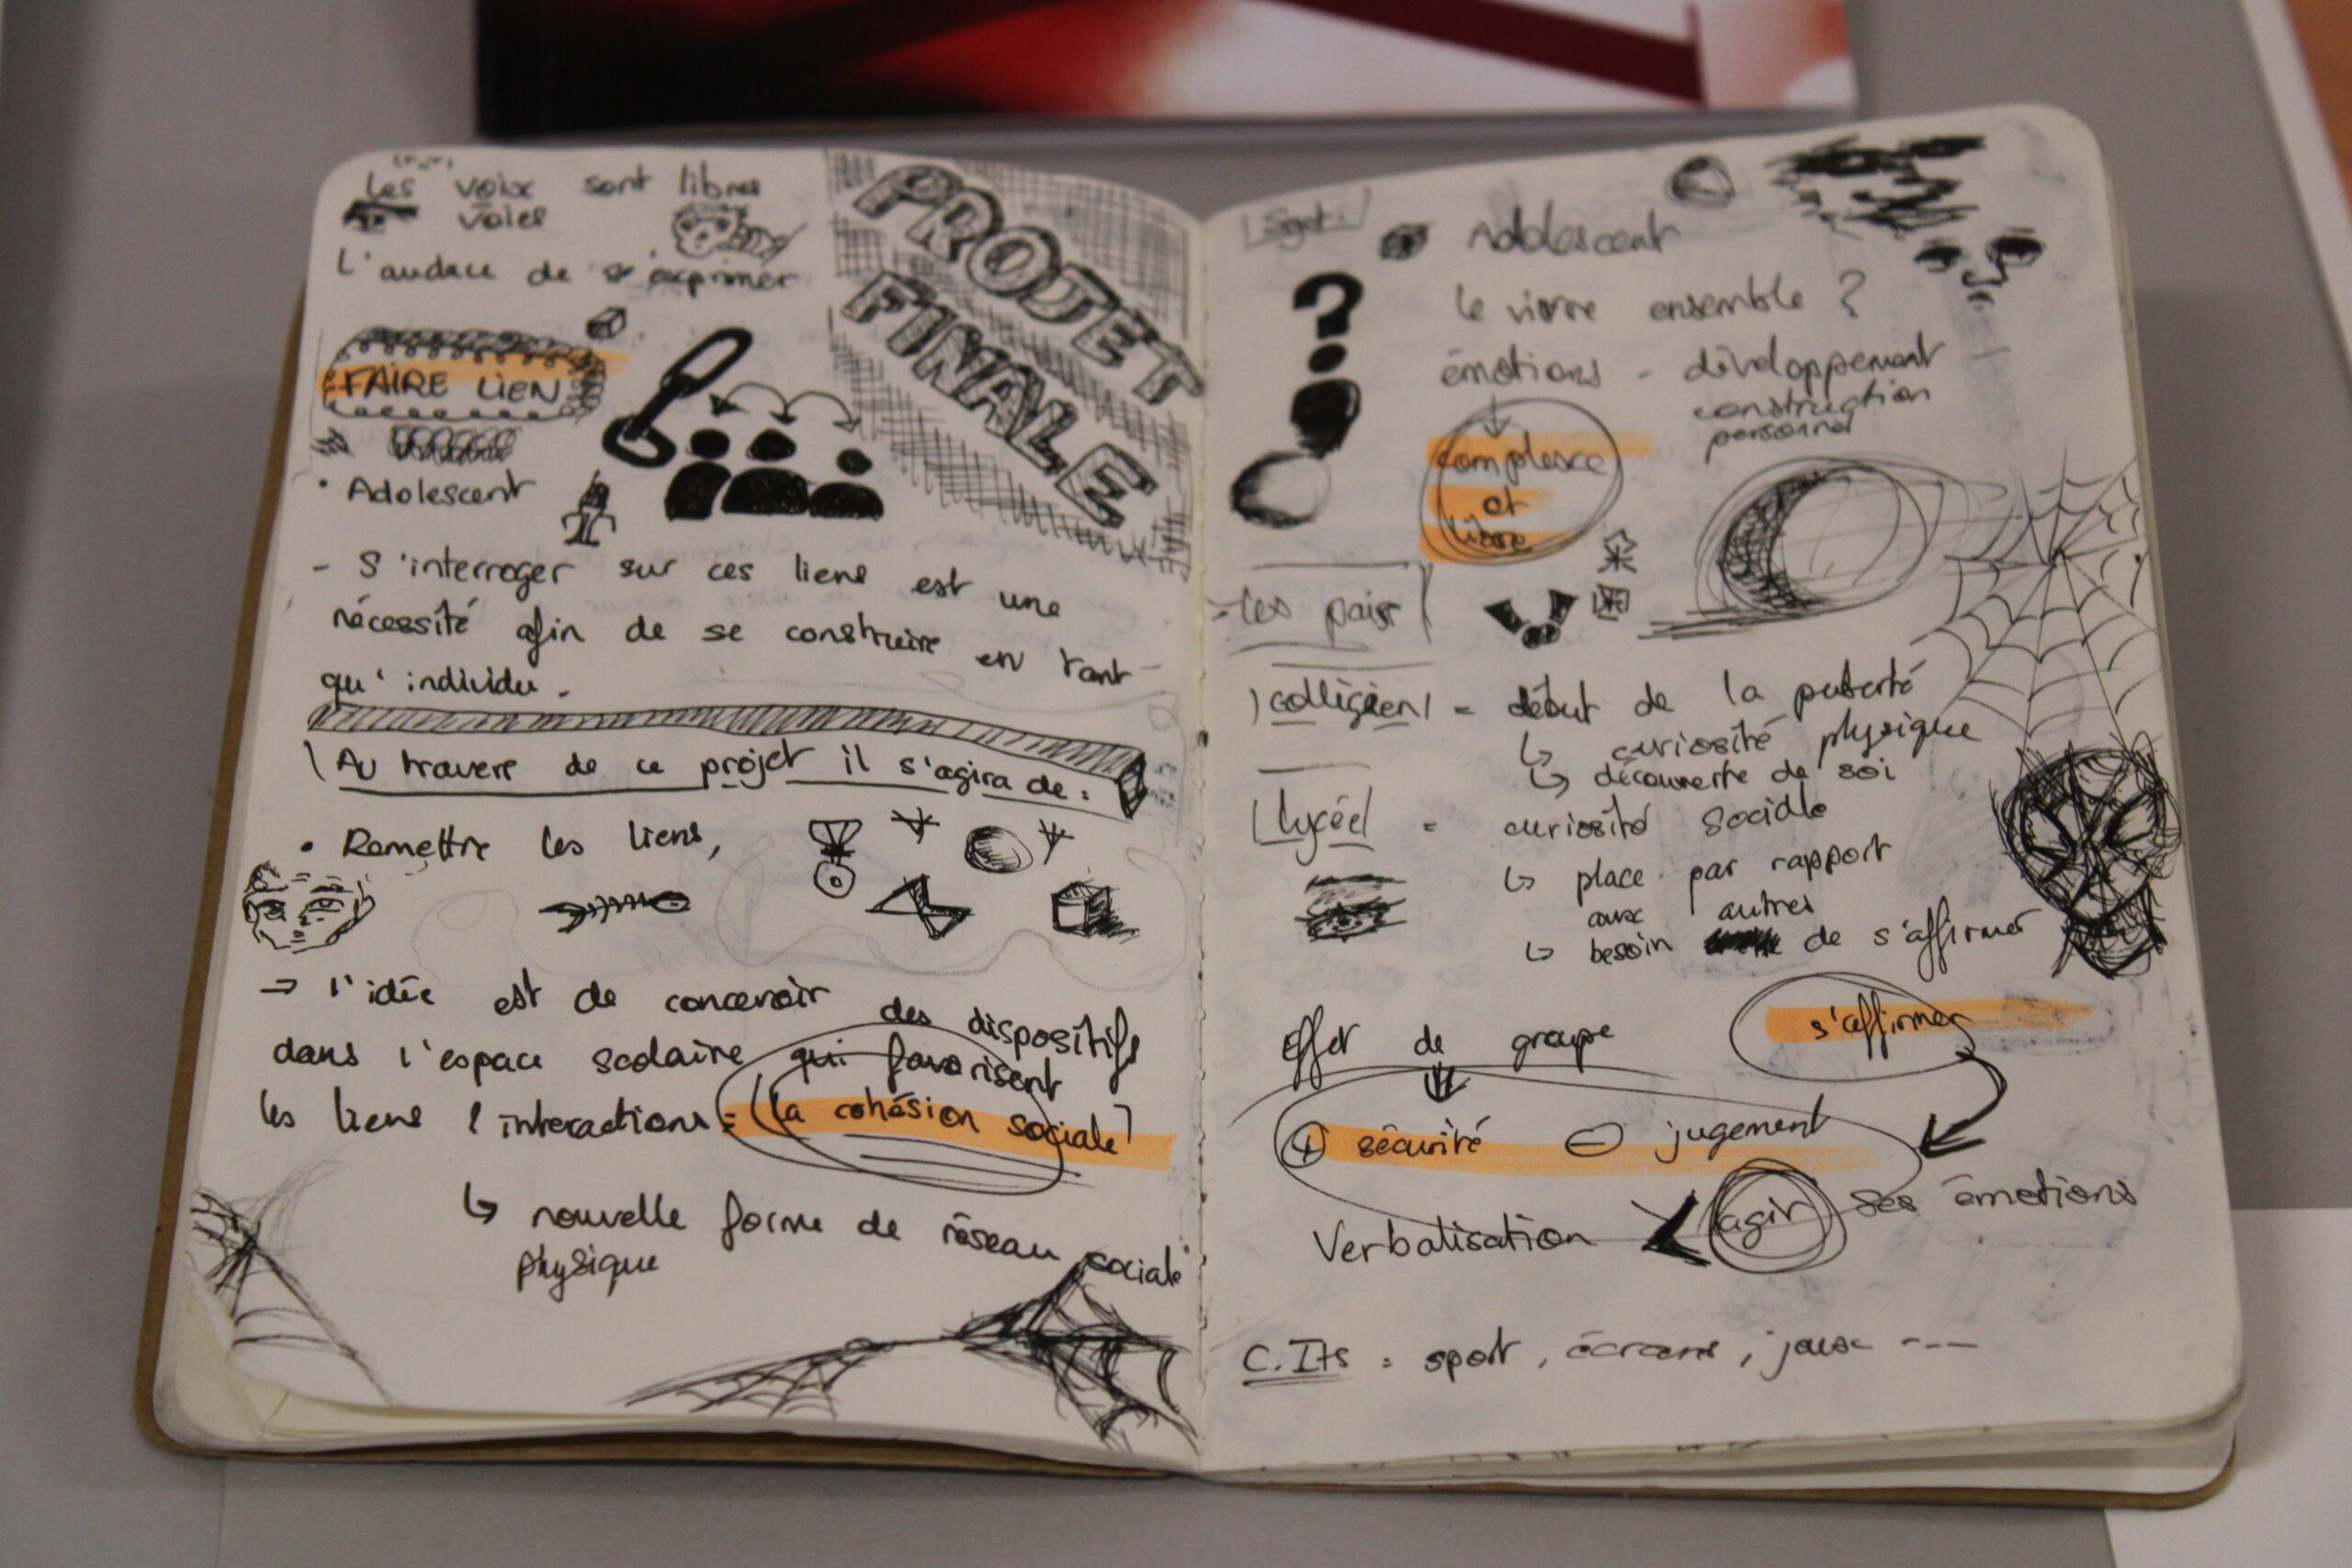 Les voix sont libres
voies
L'audace de s'exprimer
PROJET
FINALE
FAIRE LIEN
• Adolescent
- S'interroger sur ces liens est une
nécessité afin de se construire en tant
qu'individu.
Au travers de ce projet il s'agira de :
• Remettre les liens,
→ l'idée est de concevoir des dispositifs
dans l'espace scolaire qui favorisent
les liens & interactions = (la cohésion sociale)
↳ nouvelle forme de réseau sociale
physique
Adolescent
le vivre ensemble ?
émotions - développement
construction
personnel
complexe
et
libre
- les pairs
collégien = début de la puberté
↳ curiosité physique
↳ découverte de soi
lycée = curiosité sociale
↳ place par rapport
aux autres
↳ besoin de s'affirmer
Effet de groupe s'affirmer
+ sécurité - jugement
Verbalisation < agir ses émotions
C.Its : sport, écrans, jeux ---